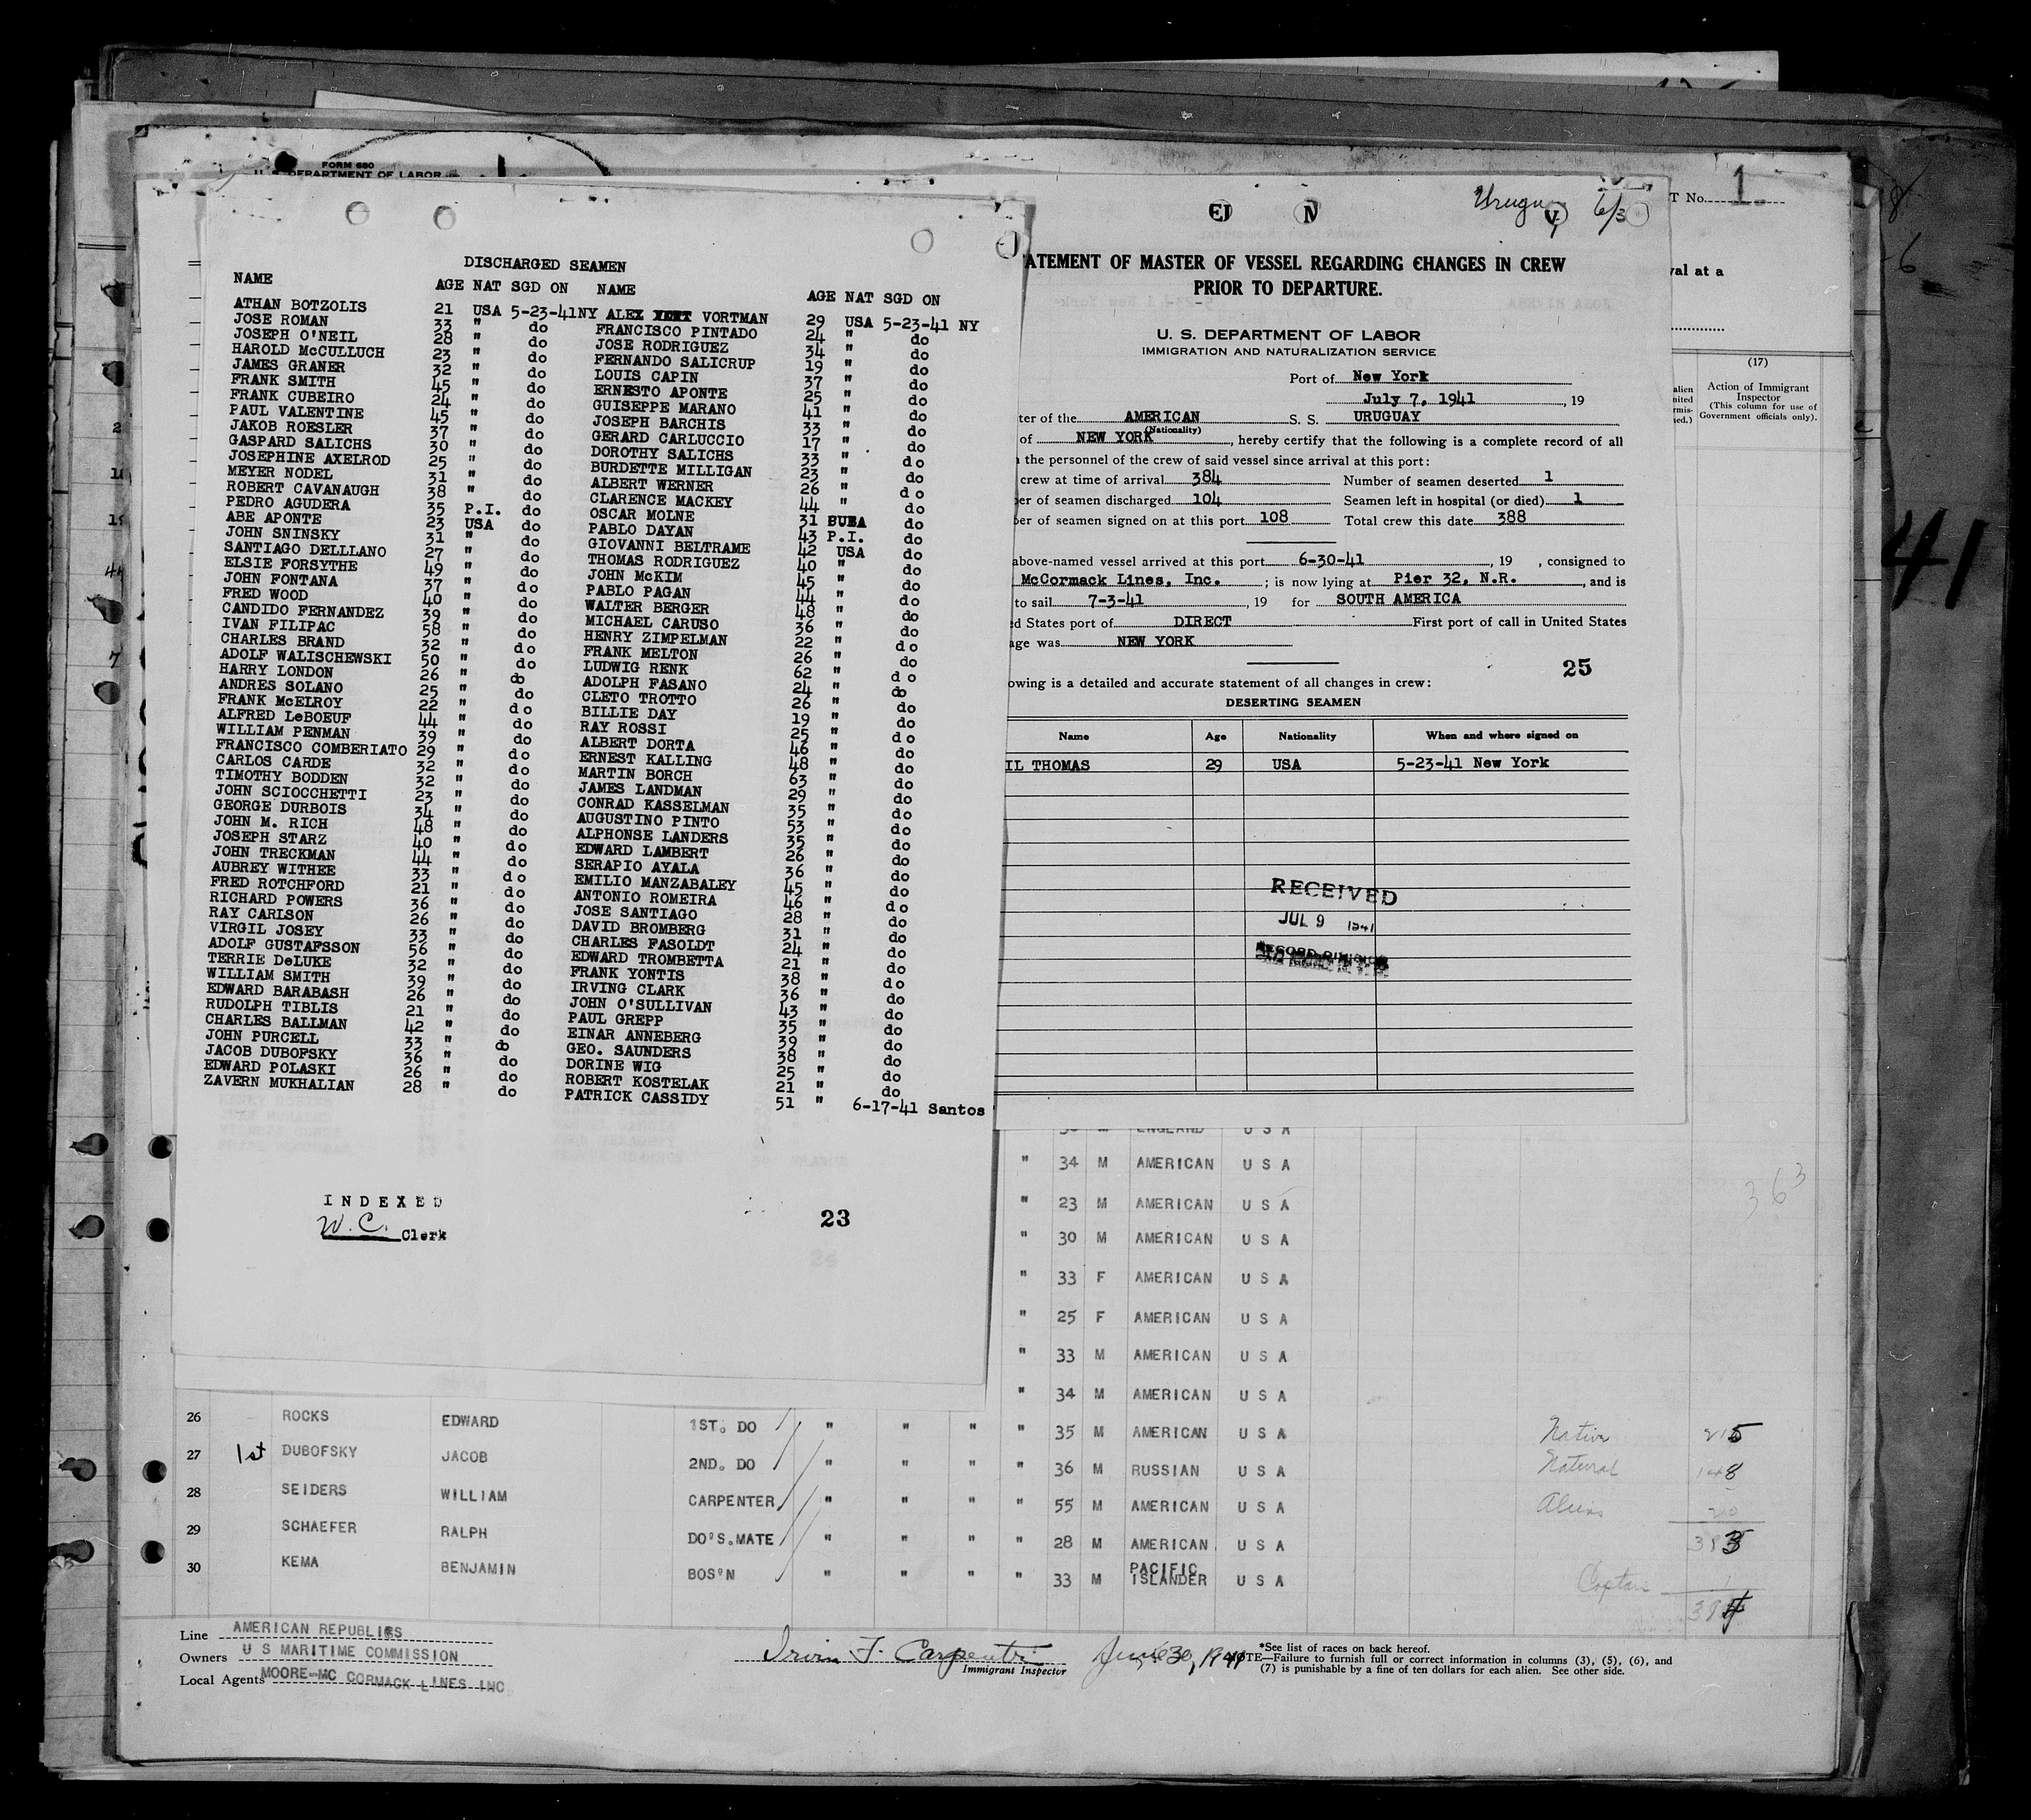 FORM 680
U. S. DEPARTMENT OF LABOR
DISCHARGED SEAMEN
NAME AGE NAT SGD ON NAME AGE NAT SGD ON
ATHAN BOTZOLIS 21 USA 5-23-41NY ALEX VORTMAN 29 USA 5-23-41 NY
JOSE ROMAN 33 " do FRANCISCO PINTADO 24 " do
JOSEPH O'NEIL 28 " do JOSE RODRIGUEZ 34 " do
HAROLD McCULLUCH 23 " do FERNANDO SALICRUP 19 " do
JAMES GRANER 32 " do LOUIS CAPIN 37 " do
FRANK SMITH 45 " do ERNESTO APONTE 25 " do
FRANK CUBEIRO 24 " do GUISEPPE MARANO 41 " do
PAUL VALENTINE 45 " do JOSEPH BARCHIS 33 " do
JAKOB ROESLER 37 " do GERARD CARLUCCIO 17 " do
GASPARD SALICHS 30 " do DOROTHY SALICHS 33 " do
JOSEPHINE AXELROD 25 " do BURDETTE MILLIGAN 23 " do
MEYER NODEL 31 " do ALBERT WERNER 26 " do
ROBERT CAVANAUGH 38 " do CLARENCE MACKEY 44 " do
PEDRO AGUDERA 35 P.I. do OSCAR MOLNE 31 do
ABE APONTE 23 USA do PABLO DAYAN 43 P.I. do
JOHN SNINSKY 31 " do GIOVANNI BELTRAME 42 USA do
SANTIAGO DELLLANO 27 " do THOMAS RODRIGUEZ 40 " do
ELSIE FORSYTHE 49 " do JOHN McKIM 45 " do
JOHN FONTANA 37 " do PABLO PAGAN 44 " do
FRED WOOD 40 " do WALTER BERGER 48 " do
CANDIDO FERNANDEZ 39 " do MICHAEL CARUSO 36 " do
IVAN FILIPAC 58 " do HENRY ZIMPELMAN 22 " do
CHARLES BRAND 32 " do FRANK MELTON 26 " do
ADOLF WALISCHEWSKI 50 " do LUDWIG RENK 62 " do
HARRY LONDON 26 " do ADOLPH FASANO 24 " do
ANDRES SOLANO 25 " do CLETO TROTTO 26 " do
FRANK McELROY 22 " do BILLIE DAY 19 " do
ALFRED LeBOEUF 44 " do RAY ROSSI 25 " do
WILLIAM PENMAN 39 " do ALBERT DORTA 46 " do
FRANCISCO COMBERIATO 29 " do ERNEST KALLING 48 " do
CARLOS CARDE 32 " do MARTIN BORCH 63 " do
TIMOTHY BODDEN 32 " do JAMES LANDMAN 29 " do
JOHN SCIOCCHETTI 23 " do CONRAD KASSELMAN 35 " do
GEORGE DURBOIS 34 " do AUGUSTINO PINTO 53 " do
JOHN M. RICH 48 " do ALPHONSE LANDERS 35 " do
JOSEPH STARZ 40 " do EDWARD LAMBERT 26 " do
JOHN TRECKMAN 44 " do SERAPIO AYALA 36 " do
AUBREY WITHEE 33 " do EMILIO MANZABALEY 45 " do
FRED ROTCHFORD 21 " do ANTONIO ROMEIRA 46 " do
RICHARD POWERS 36 " do JOSE SANTIAGO 28 " do
RAY CARLSON 26 " do DAVID BROMBERG 31 " do
VIRGIL JOSEY 33 " do CHARLES FASOLDT 24 " do
ADOLF GUSTAFSSON 56 " do EDWARD TROMBETTA 21 " do
TERRIE DeLUKE 32 " do FRANK YONTIS 38 " do
WILLIAM SMITH 39 " do IRVING CLARK 36 " do
EDWARD BARABASH 26 " do JOHN O'SULLIVAN 43 " do
RUDOLPH TIBLIS 21 " do PAUL GREPP 35 " do
CHARLES BALLMAN 42 " do EINAR ANNEBERG 39 " do
JOHN PURCELL 33 " do GEO. SAUNDERS 38 " do
JACOB DUBOFSKY 36 " do DORINE WIG 25 " do
EDWARD POLASKI 26 " do ROBERT KOSTELAK 21 " do
ZAVERN MUKHALIAN 28 " do PATRICK CASSIDY 51 " 6-17-41 Santos
INDEXED
W. C. Clerk
23
ATEMENT OF MASTER OF VESSEL REGARDING CHANGES IN CREW
PRIOR TO DEPARTURE.
U. S. DEPARTMENT OF LABOR
IMMIGRATION AND NATURALIZATION SERVICE
Port of New York
July 7, 1941, 19
ter of the AMERICAN S. S. URUGUAY
(Nationality)
of NEW YORK, hereby certify that the following is a complete record of all
the personnel of the crew of said vessel since arrival at this port:
crew at time of arrival 384 Number of seamen deserted 1
er of seamen discharged 104 Seamen left in hospital (or died) 1
er of seamen signed on at this port 108 Total crew this date 388
above-named vessel arrived at this port 6-30-41, 19 , consigned to
McCormack Lines, Inc. ; is now lying at Pier 32, N.R., and is
to sail 7-3-41, 19 for SOUTH AMERICA
d States port of DIRECT First port of call in United States
age was NEW YORK
25
owing is a detailed and accurate statement of all changes in crew:
DESERTING SEAMEN
Name Age Nationality When and where signed on
IL THOMAS 29 USA 5-23-41 New York
RECEIVED
JUL 9 1941
RECORD DIVISION
T No. 1
val at a
(17)
alien Action of Immigrant
nited Inspector
rmis- (This column for use of
ed.) Government officials only).
41
ENGLAND U S A
" 34 M AMERICAN U S A
" 23 M AMERICAN U S A
" 30 M AMERICAN U S A
" 33 F AMERICAN U S A
" 25 F AMERICAN U S A
" 33 M AMERICAN U S A
" 34 M AMERICAN U S A
363
26 ROCKS EDWARD 1ST. DO " " " " 35 M AMERICAN U S A
27 1st DUBOFSKY JACOB 2ND. DO " " " " 36 M RUSSIAN U S A
28 SEIDERS WILLIAM CARPENTER " " " " 55 M AMERICAN U S A
29 SCHAEFER RALPH DO'S.MATE " " " " 28 M AMERICAN U S A
30 KEMA BENJAMIN BOS'N " " " " 33 M PACIFIC ISLANDER U S A
Native 215
Natural 148
Aliens 20
383
Captain 1
384
Line AMERICAN REPUBLICS
Owners U S MARITIME COMMISSION
Local Agents MOORE-MC CORMACK LINES INC.
Irvin F. Carpenter June 30, 1941
Immigrant Inspector
*See list of races on back hereof.
NOTE—Failure to furnish full or correct information in columns (3), (5), (6), and
(7) is punishable by a fine of ten dollars for each alien. See other side.